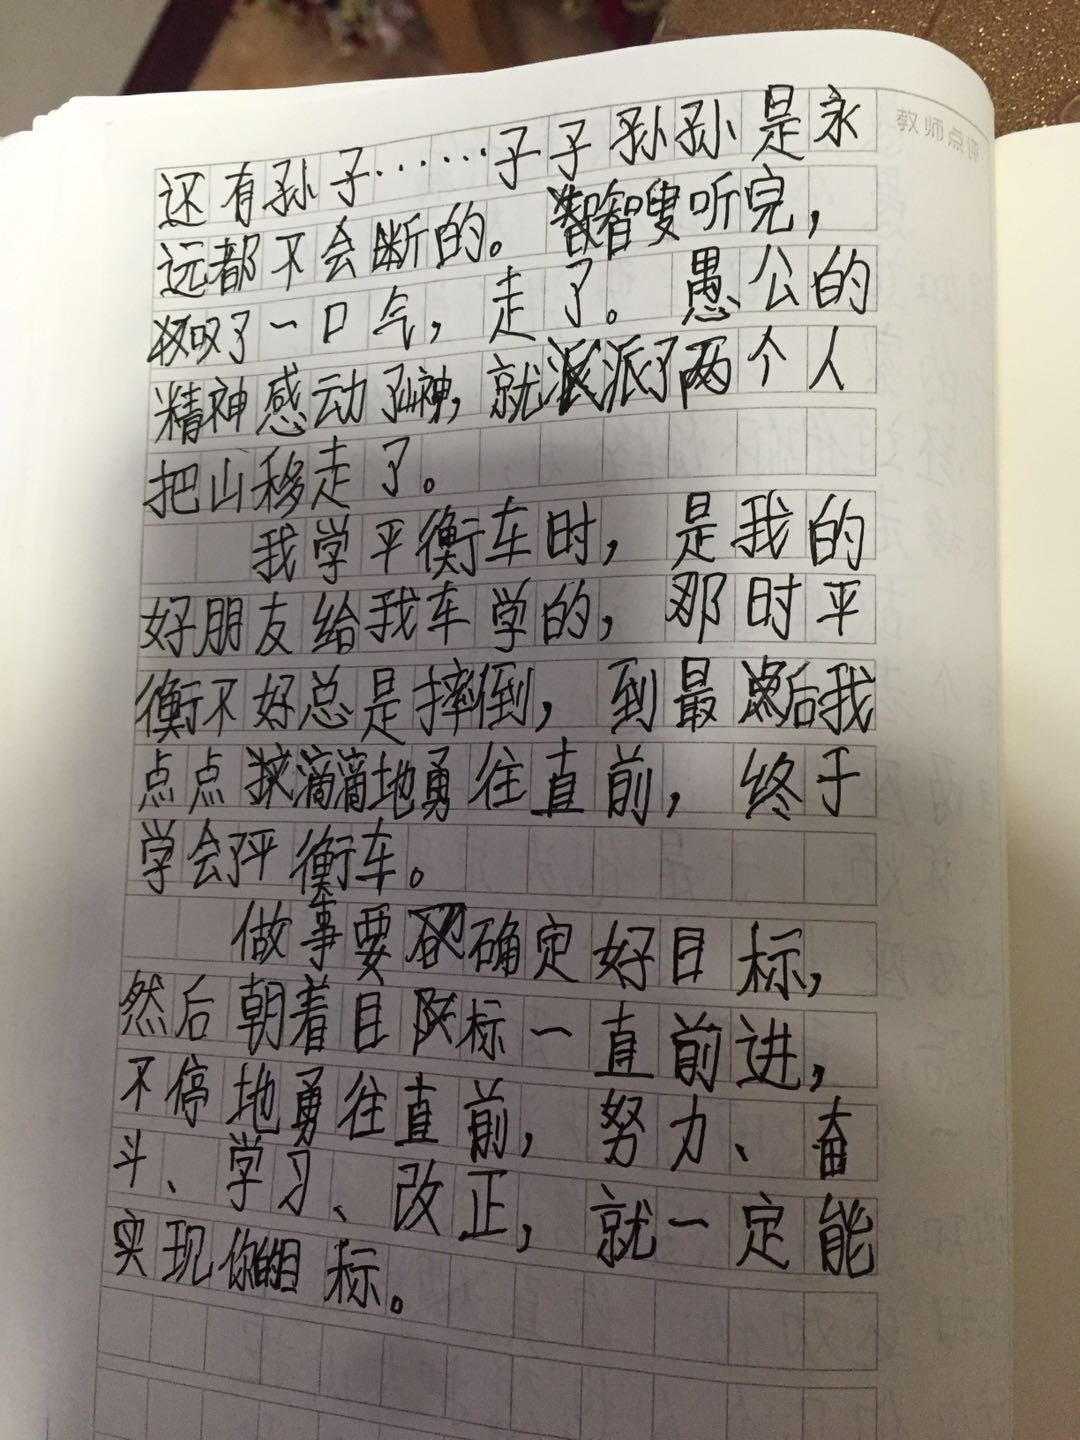 教师点评
还有孙子……子子孙孙是永
远都不会断的。智叟听完，
叹了一口气，走了。愚公的
精神感动了山神，就派了两个人
把山移走了。
我学平衡车时，是我的
好朋友给我车学的，那时平
衡不好总是摔倒，到最后我
点点滴滴地勇往直前，终于
学会了平衡车。
做事要确定好目标，
然后朝着目标一直前进，
不停地勇往直前，努力、奋
斗、学习、改正，就一定能
实现你的目标。